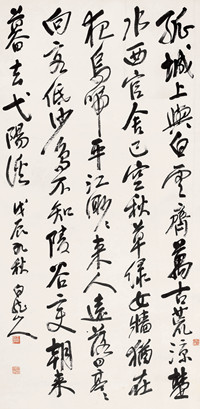 孤城上與白雲齊萬古荒涼楚
水西官舍已空秋草綠女牆猶在
夜烏啼平江渺〻來人遠落日亭〻
向客低沙鳥不知陵谷變朝來
暮去弋陽溪 戊辰 秋 白龍山人